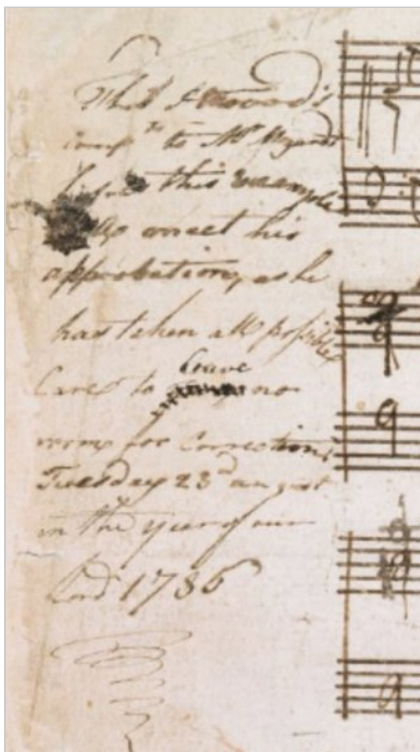 Tho.s Attwood's
comp.ts to Mr Mozart
hopes this Example
meet his
approbation, as he
has taken all possible
leave
Care to no
room for Correction,
Tuesday 23d august
in the year of our
Lord 1785